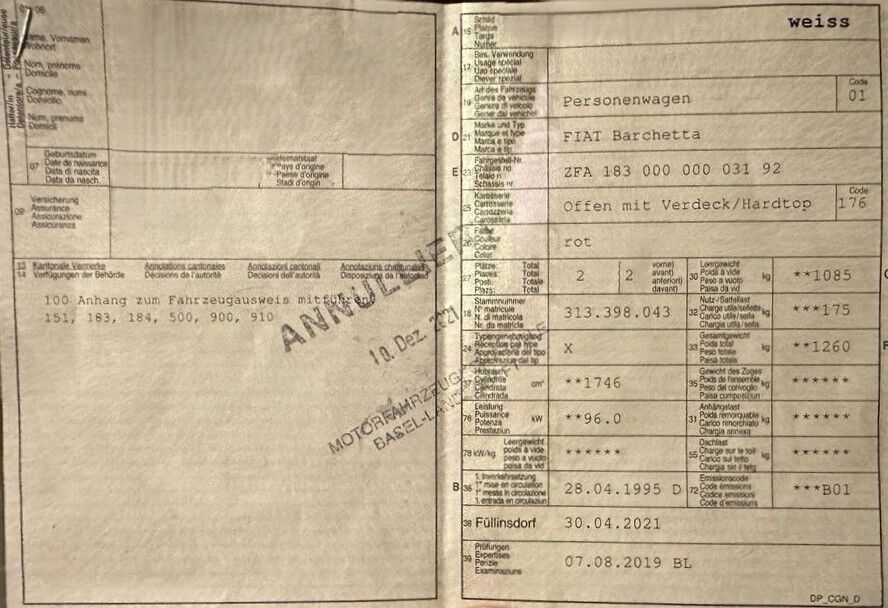 Name, Vornamen
Wohnort
Nom, prénoms
Domicile
Cognome, nomi
Domicilio
Num, prenums
Domicil
07
Geburtsdatum
Date de naissance
Data di nascita
Data da nasch.
Heimatstaat
Pays d'origine
Paese d'origine
Stadi d'origin
09
Versicherung
Assurance
Assicurazione
Assicuranza
13 Kantonale Vermerke Annotations cantonales Annotazioni cantonali Annotaziuns chantunalas
14 Verfügungen der Behörde Décisions de l'autorité Decisioni dell'autorità Disposiziuns da l'autoridad
100 Anhang zum Fahrzeugausweis mitführen
151, 183, 184, 500, 900, 910
ANNULLIERT
10. Dez. 2021
BASEL-LANDSCHAFT
weiss
A 15
Schild
Plaque
Targa
Numer
17
Bes. Verwendung
Usage spécial
Uso speciale
Diever spezial
19
Art des Fahrzeugs
Genre de véhicule
Genere di veicolo
Gener dal vehichel
Personenwagen
Code
01
D 21
Marke und Typ
Marque et type
Marca e tipo
Marca e tip
FIAT Barchetta
E 23
Fahrgestell-Nr.
Châssis no
Telaio n.
Schassis nr.
ZFA 183 000 000 031 92
25
Karosserie
Carrosserie
Carrozzeria
Carossaria
Offen mit Verdeck/Hardtop
Code
176
26
Farbe
Couleur
Colore
Colur
rot
27
Plätze: Total
Places: Total
Posti: Totale
Plazs: Total
2 2
vorne)
avant)
anteriori)
davant)
30
Leergewicht
Poids à vide
Peso a vuoto
Paisa da vid
kg
**1085
18
Stammnummer
N° matricule
N. di matricola
Nr. da matricla
313.398.043
32
Nutz-/Sattellast
Charge utile/sellette
Carico utile/sella
Chargia utila/sella
kg
***175
24
Typengenehmigung
Réception par type
Approvazione del tipo
Approvaziun dal tip
X
33
Gesamtgewicht
Poids total
Peso totale
Paisa totala
kg
**1260
37
Hubraum
Cylindrée
Cilindrata
Cilindrada
cm³
**1746
35
Gewicht des Zuges
Poids de l'ensemble
Peso del convoglio
Paisa cumposiziun
kg
******
76
Leistung
Puissance
Potenza
Prestaziun
kW
**96.0
31
Anhängelast
Poids remorquable
Carico rimorchiato
Chargia annexa
kg
******
78 kW/kg
Leergewicht
poids à vide
peso a vuoto
paisa da vid
******
55
Dachlast
Charge sur le toit
Carico sul tetto
Chargia sin il tetg
kg
******
B 36
1. Inverkehrsetzung
1re mise en circulation
1a messa in circolazione
1. entrada en circulaziun
28.04.1995 D
72
Emissionscode
Code émissions
Codice emissioni
Code d'emissiuns
***B01
38 Füllinsdorf 30.04.2021
39
Prüfungen
Expertises
Perizie
Examinaziuns
07.08.2019 BL
DP_CGN_D